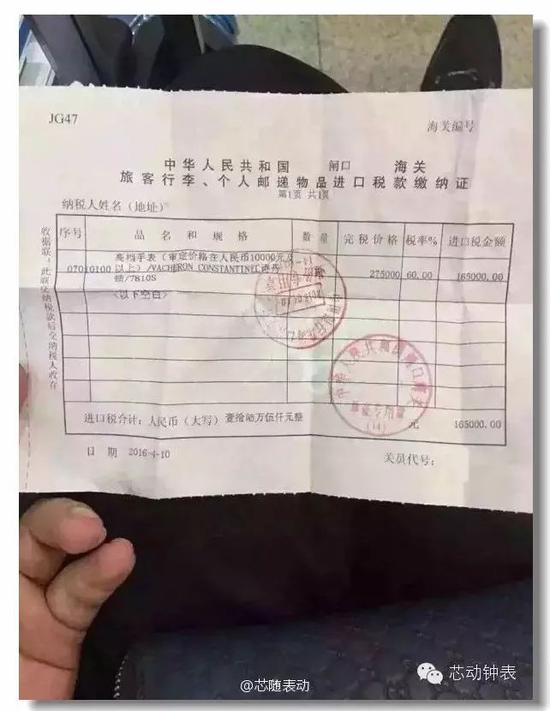 JG47
海关编号
中华人民共和国 闸口 海关
旅客行李、个人邮递物品进口税款缴纳证
第1页 共1页
纳税人姓名(地址)
序号 品名和规格 数量 完税价格 税率% 进口税金额
高档手表(审定价格在人民币10000元及
07010100 以上)/VACHERON CONSTANTIN 275000 60.00 165000.00
顿/7810S
(以下空白)
进口税合计:人民币(大写) 壹拾陆万伍仟元整 元 165000.00
日期 2016-4-10 关员代号:
收据联:此联受纳税款后交纳税人收存
中华人民共和国闸口海关
单证专用章
(14)
@芯随表动
芯动钟表